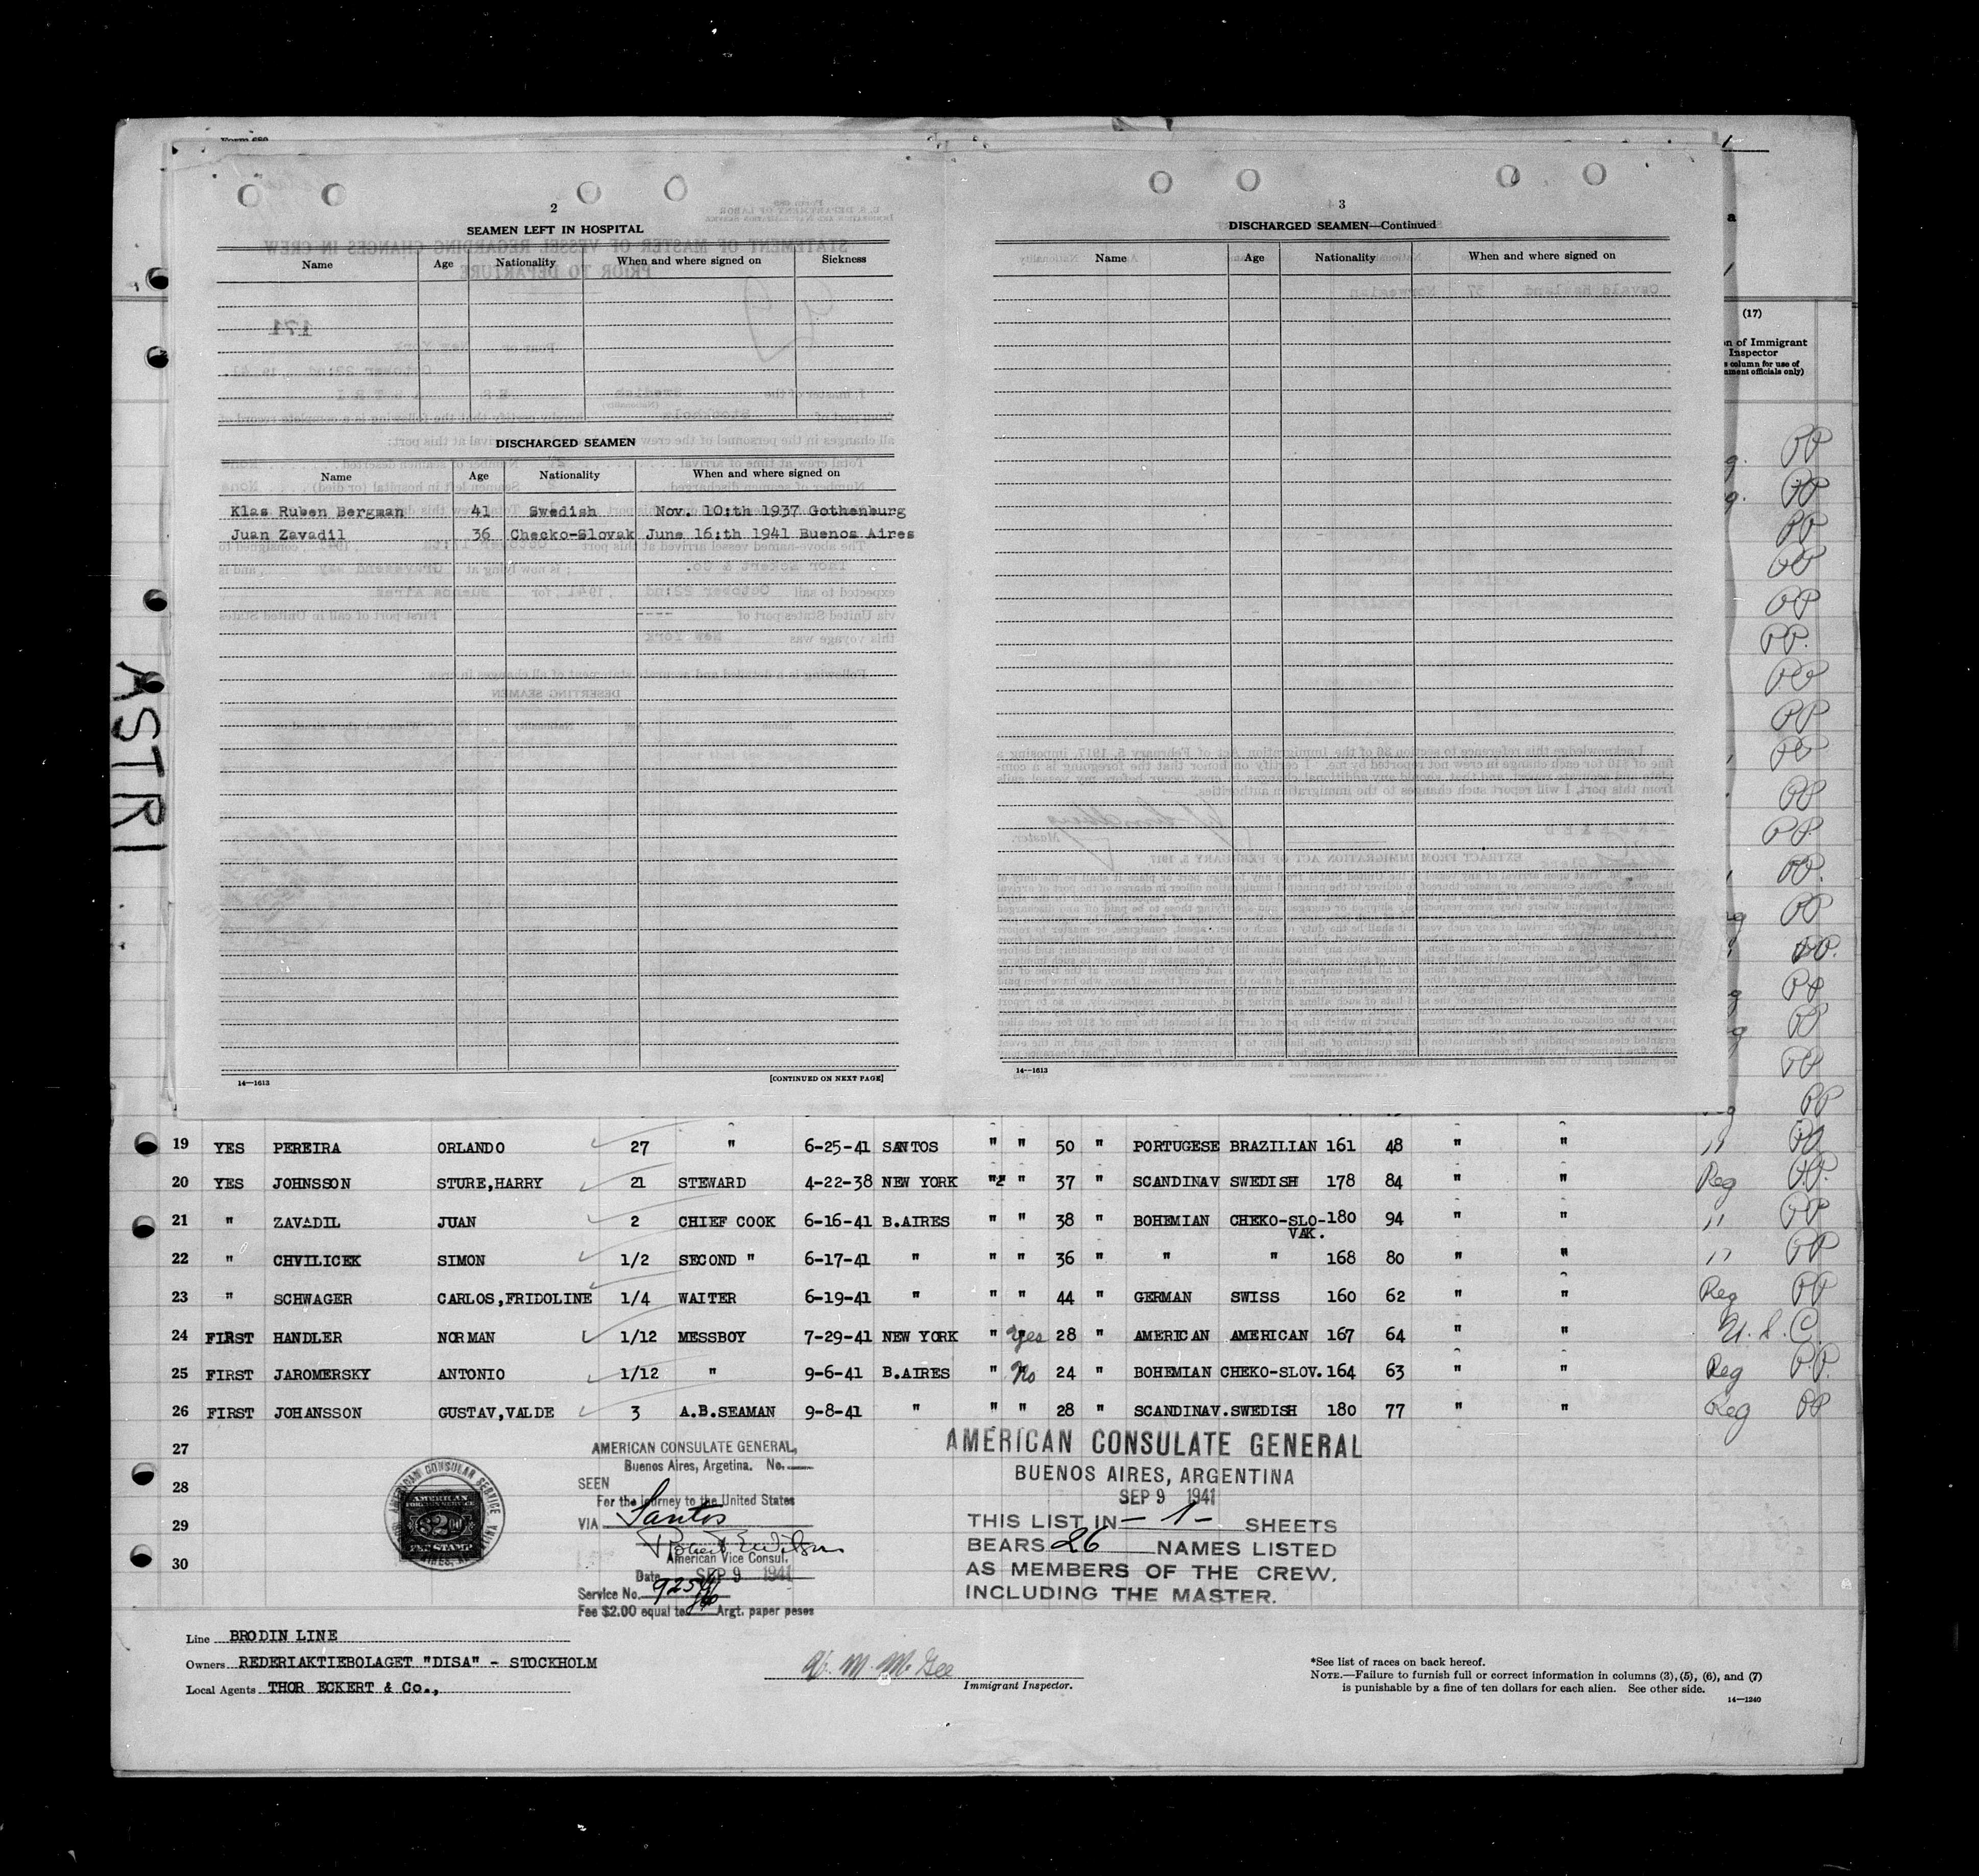 2
SEAMEN LEFT IN HOSPITAL
Name Age Nationality When and where signed on Sickness
DISCHARGED SEAMEN
Name Age Nationality When and where signed on
Klas Ruben Bergman 41 Swedish Nov. 10:th 1937 Gothenburg
Juan Zavadil 36 Checko-Slovak June 16:th 1941 Buenos Aires
14—1613 [CONTINUED ON NEXT PAGE]
3
DISCHARGED SEAMEN—Continued
Name Age Nationality When and where signed on
14—1613
(17)
of Immigrant
Inspector
column for use of
officials only)
ASTRI
19 YES PEREIRA ORLANDO 27 " 6-25-41 SANTOS " " 50 " PORTUGESE BRAZILIAN 161 48 " " "
20 YES JOHNSSON STURE,HARRY 21 STEWARD 4-22-38 NEW YORK " " 37 " SCANDINAV SWEDISH 178 84 " " Reg PP
21 " ZAVADIL JUAN 2 CHIEF COOK 6-16-41 B.AIRES " " 38 " BOHEMIAN CHEKO-SLO- 180 94 " " " PP
VAK.
22 " CHVILICEK SIMON 1/2 SECOND " 6-17-41 " " " 36 " " " 168 80 " " " PP
23 " SCHWAGER CARLOS,FRIDOLINE 1/4 WAITER 6-19-41 " " " 44 " GERMAN SWISS 160 62 " " Reg PP
24 FIRST HANDLER NORMAN 1/12 MESSBOY 7-29-41 NEW YORK " Yes 28 " AMERICAN AMERICAN 167 64 " " U.S.C.
25 FIRST JAROMERSKY ANTONIO 1/12 " 9-6-41 B.AIRES " No 24 " BOHEMIAN CHEKO-SLOV. 164 63 " " Reg P.P.
26 FIRST JOHANSSON GUSTAV,VALDE 3 A.B.SEAMAN 9-8-41 " " " 28 " SCANDINAV. SWEDISH 180 77 " " Reg PP
27
28
29
30
AMERICAN CONSULATE GENERAL,
Buenos Aires, Argetina. No.
SEEN
For the journey to the United States
VIA Santos
Robert E Wilson
American Vice Consul.
Date SEP 9 1941
Service No. 9254
Fee $2.00 equal to Argt. paper pesos
AMERICAN CONSULAR SERVICE
AMERICAN
FOREIGN SERVICE
$2.00
FEE STAMP
AMERICAN CONSULATE GENERAL
BUENOS AIRES, ARGENTINA
SEP 9 1941
THIS LIST IN - 1 - SHEETS
BEARS 26 NAMES LISTED
AS MEMBERS OF THE CREW,
INCLUDING THE MASTER.
Line BRODIN LINE
Owners REDERIAKTIEBOLAGET "DISA" - STOCKHOLM
Local Agents THOR ECKERT & Co.,
Immigrant Inspector.
*See list of races on back hereof.
NOTE.—Failure to furnish full or correct information in columns (3), (5), (6), and (7)
is punishable by a fine of ten dollars for each alien. See other side.
14—1240